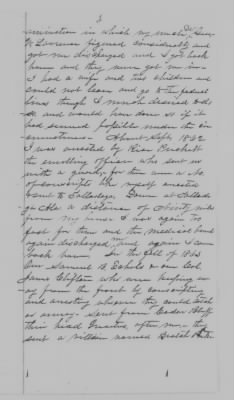 3
amination in which my
Lawrence figured considerably and
got me discharged and I got back
home and they never got me in.
I had a wife and children and
could not leave and go to the federal
lines though I much desired to do
so and would have done so if it
had seemed possible under the cir-
cumstances. About 1862
I was arrested by
the enrolling officer who sent me
with a guard, for there were a No.
of conscripts who were arrested
sent to Talladega. Down at Tallade-
ga after a distance of
from my home I was again too
fast for them and the medical board
again discharged me and again I came
back home. In the fall of 1863
Gen Samuel B. Echols or our Col
Jane Clifton who were keeping aw-
ay from the front by conscripting
and arresting whoever they could catch
or annoy. Sent from Cedar Bluff
their head Quarters after me. They
sent a villain named